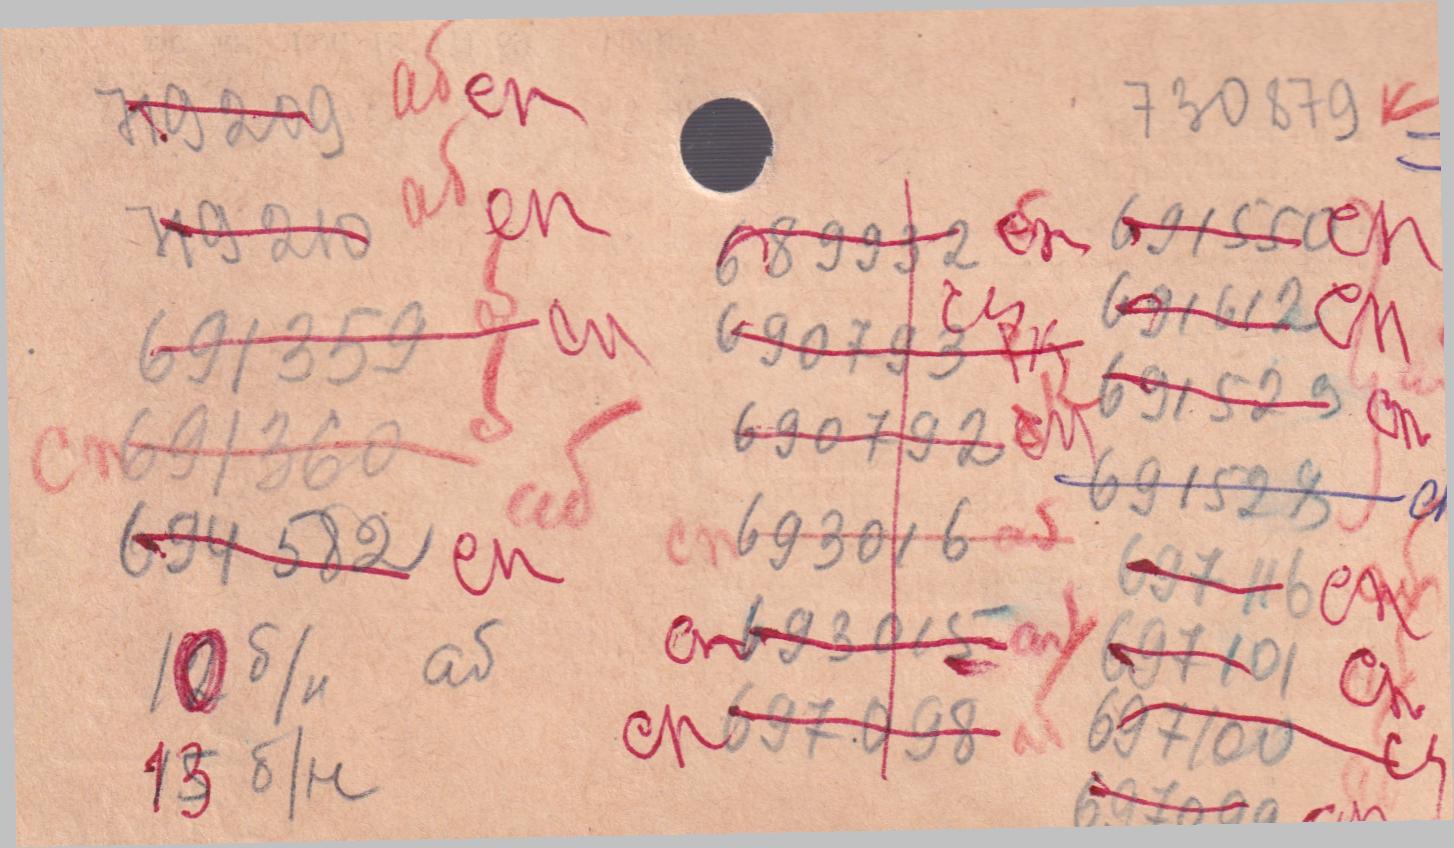 719209 аб сп
719210 аб сп
691359 аб сп
сп 691360 аб
694582 сп
10 б/н аб
13 б/н
689932 сп
690793 сп
690792 сп
сп 693016 аб
сп 693015 аб
сп 697098 аб
730879
691550 сп
691612 сп
691529 сп
691528 сп
697116 сп
697101 сп
697100 сп
697099 сп